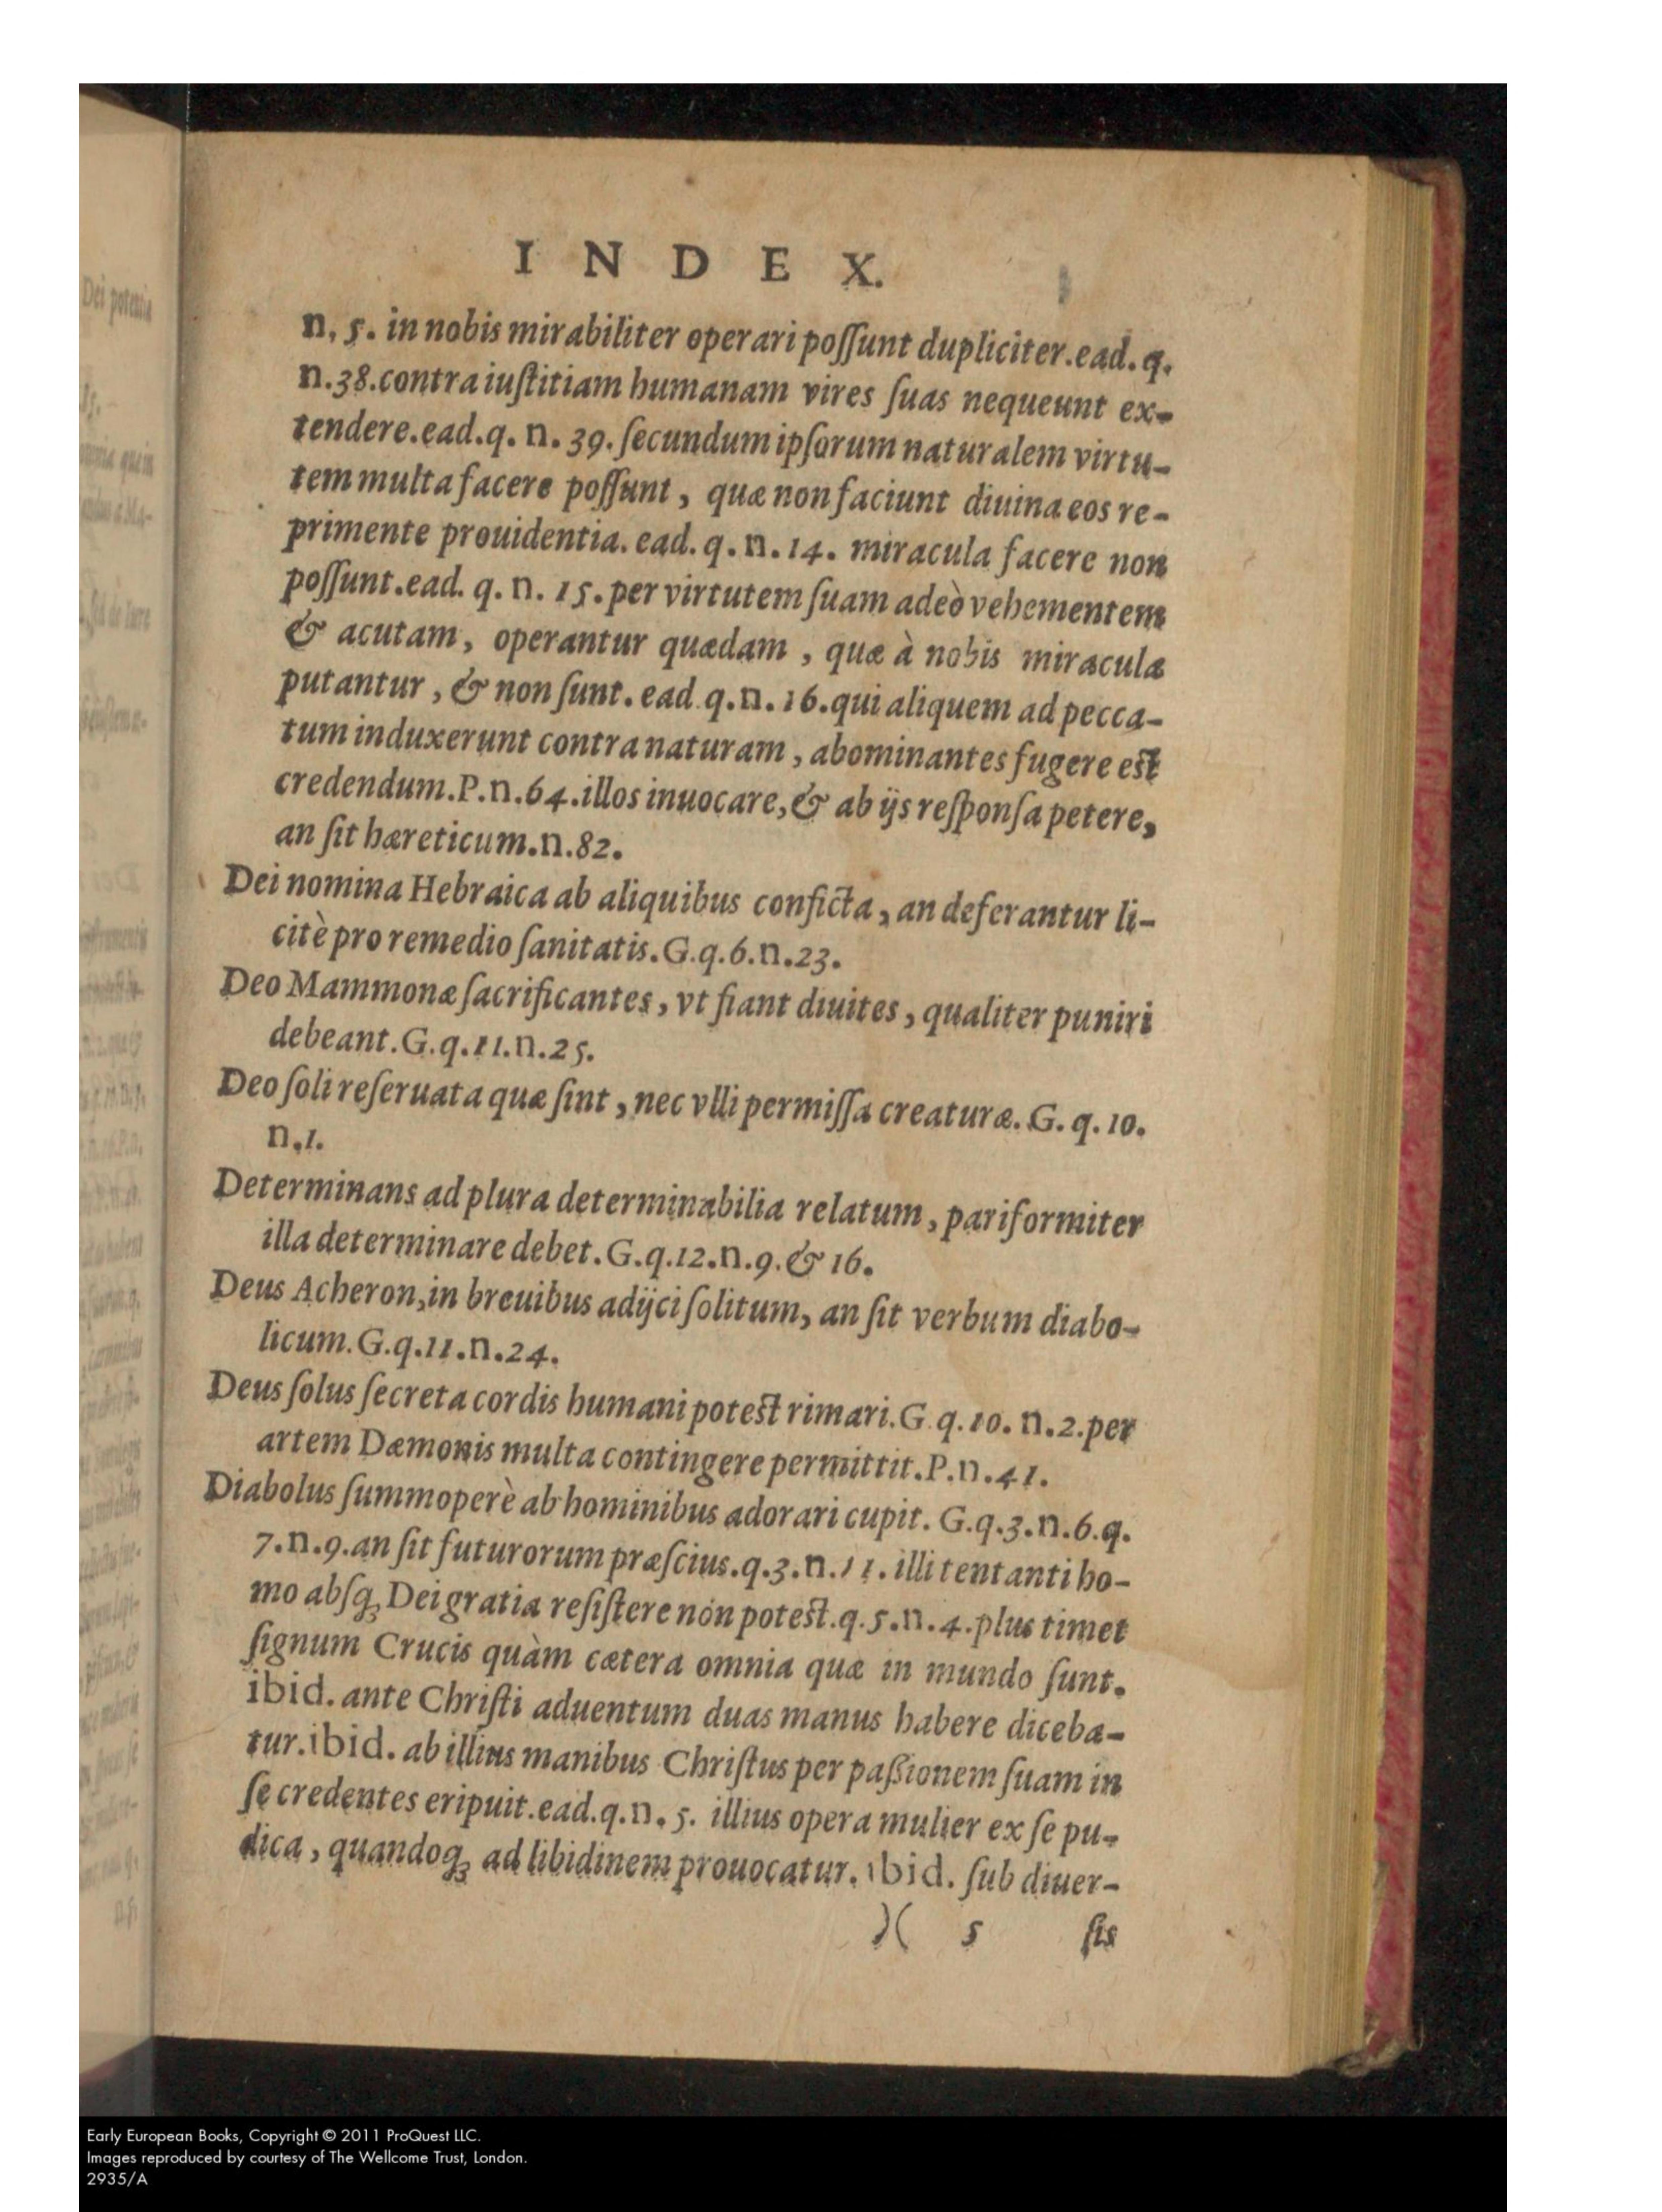 INDEX.
n. 5. in nobis mirabiliter operari poſſunt dupliciter. ead. q.
n. 38. contra iuſtitiam humanam vires ſuas nequeunt ex-
tendere. ead. q. n. 39. ſecundum ipſorum naturalem virtu-
tem multa facere poſſunt, quæ non faciunt diuina eos re-
primente prouidentia. ead. q. n. 14. miracula facere non
poſſunt. ead. q. n. 15. per virtutem ſuam adeò vehementem
& acutam, operantur quædam, quæ à nobis miracula
putantur, & non ſunt. ead q. n. 16. qui aliquem ad pecca-
tum induxerunt contra naturam, abominantes fugere eſt
credendum. P. n. 64. illos inuocare, & ab ijs reſponſa petere,
an ſit hæreticum. n. 82.
Dei nomina Hebraica ab aliquibus conficta, an deferantur li-
citè pro remedio ſanitatis. G. q. 6. n. 23.
Deo Mammonæ ſacrificantes, vt fiant diuites, qualiter puniri
debeant. G. q. 11. n. 25.
Deo ſoli reſeruata quæ ſint, nec vlli permiſſa creaturæ. G. q. 10.
n. 1.
Determinans ad plura determinabilia relatum, pariformiter
illa determinare debet. G. q. 12. n. 9. & 16.
Deus Acheron, in breuibus adijci ſolitum, an ſit verbum diabo-
licum. G. q. 11. n. 24.
Deus ſolus ſecreta cordis humani poteſt rimari. G q. 10. n. 2. per
artem Dæmonis multa contingere permittit. P. n. 41.
Diabolus ſummoperè ab hominibus adorari cupit. G. q. 3. n. 6. q.
7. n. 9. an ſit futurorum præſcius. q. 3. n. 11. illi tentanti ho-
mo abſq; Dei gratia reſiſtere non poteſt. q. 5. n. 4. plus timet
ſignum Crucis quàm cætera omnia quæ in mundo ſunt.
ibid. ante Chriſti aduentum duas manus habere diceba-
tur. ibid. ab illius manibus Chriſtus per paßionem ſuam in
ſe credentes eripuit. ead. q. n. 5. illius opera mulier ex ſe pu-
dica, quandoq; ad libidinem prouocatur. ibid. ſub diuer-
)( 5 ſis
Early European Books, Copyright © 2011 ProQuest LLC.
Images reproduced by courtesy of The Wellcome Trust, London.
2935/A